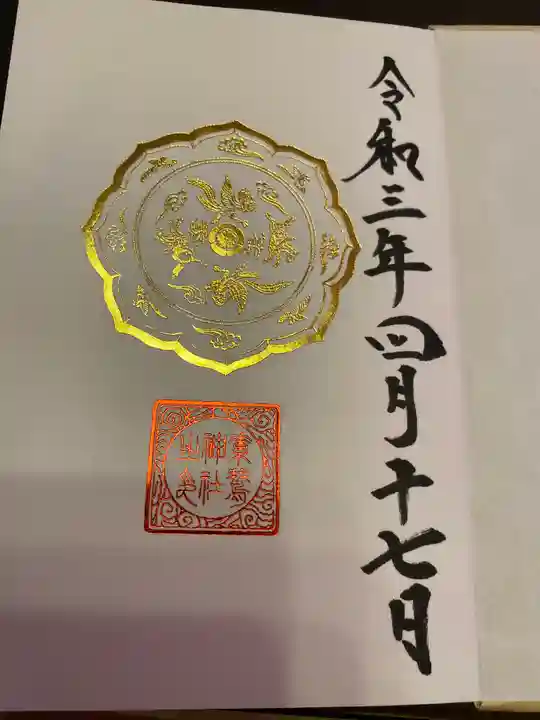 令和三年四月十七日
神社
之